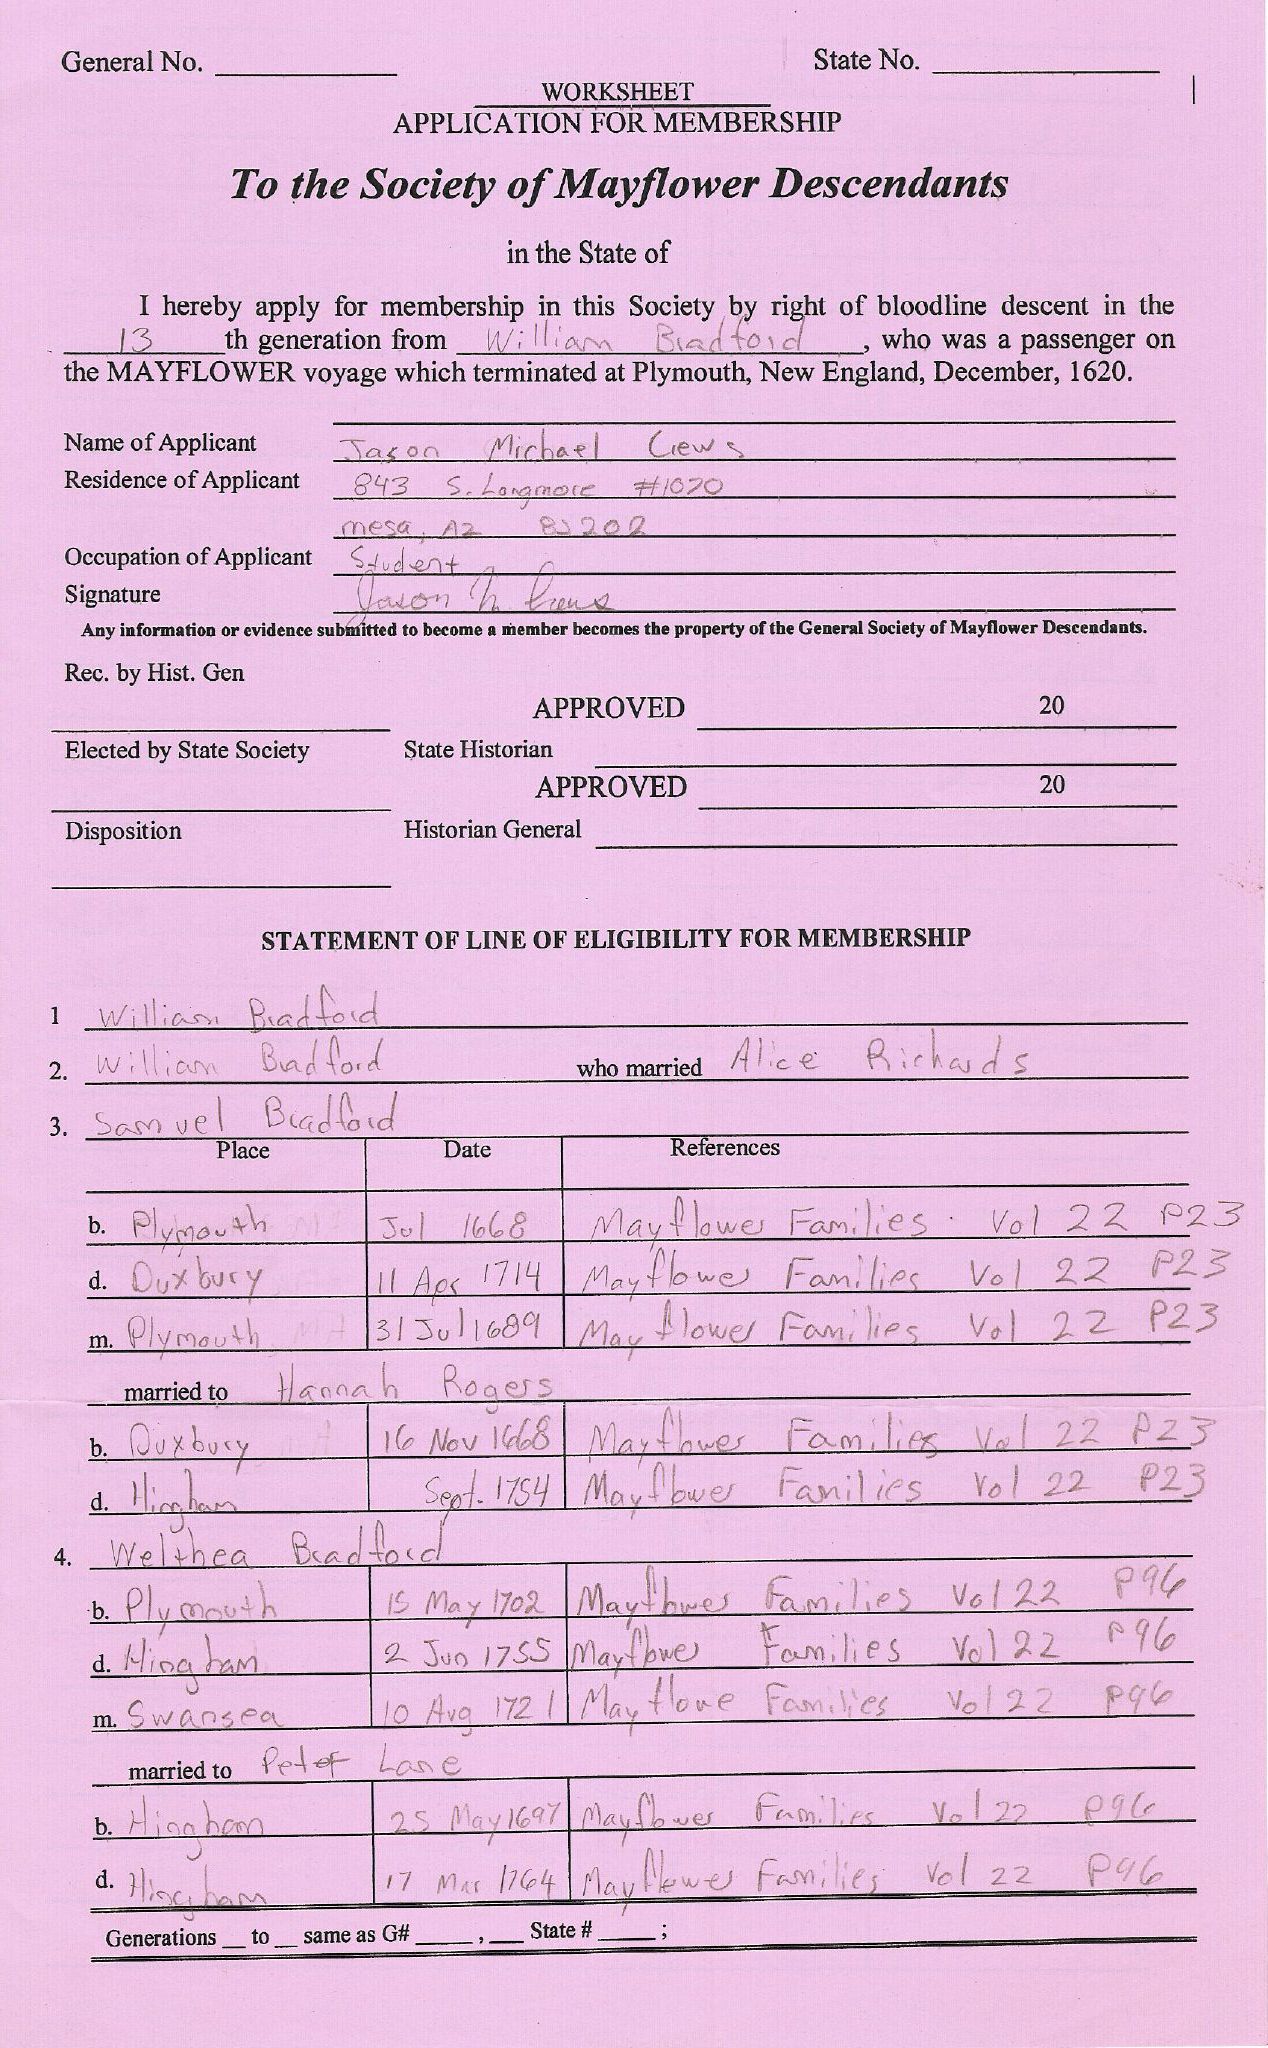 General No. ____ State No. ____
WORKSHEET
APPLICATION FOR MEMBERSHIP
To the Society of Mayflower Descendants
in the State of
I hereby apply for membership in this Society by right of bloodline descent in the
13 th generation from William Bradford, who was a passenger on
the MAYFLOWER voyage which terminated at Plymouth, New England, December, 1620.
Name of Applicant Jason Michael Crews
Residence of Applicant 843 S. Longmore #1070
mesa, AZ 85202
Occupation of Applicant Student
Signature Jason M Crews
Any information or evidence submitted to become a member becomes the property of the General Society of Mayflower Descendants.
Rec. by Hist. Gen
APPROVED 20
Elected by State Society State Historian
APPROVED 20
Disposition Historian General
STATEMENT OF LINE OF ELIGIBILITY FOR MEMBERSHIP
1 William Bradford
2. William Bradford who married Alice Richards
3. Samuel Bradford
Place Date References
b. Plymouth MA Jul 1668 Mayflower Families Vol 22 P23
d. Duxbury 11 Apr 1714 Mayflower Families Vol 22 P23
m. Plymouth MA 31 Jul 1689 Mayflower Families Vol 22 P23
married to Hannah Rogers
b. Duxbury 16 Nov 1668 Mayflower Families Vol 22 P23
d. Hingham Sept. 1754 Mayflower Families Vol 22 P23
4. Welthea Bradford
b. Plymouth 15 May 1702 Mayflower Families Vol 22 P96
d. Hingham 2 Jun 1755 Mayflower Families Vol 22 P96
m. Swansea 10 Aug 1721 Mayflowe Families Vol 22 P96
married to Peter Lane
b. Hingham 25 May 1697 Mayflower Families Vol 22 P96
d. Hingham 17 Mar 1764 Mayflower Families Vol 22 P96
Generations __ to __ same as G# ____, __ State # ____;